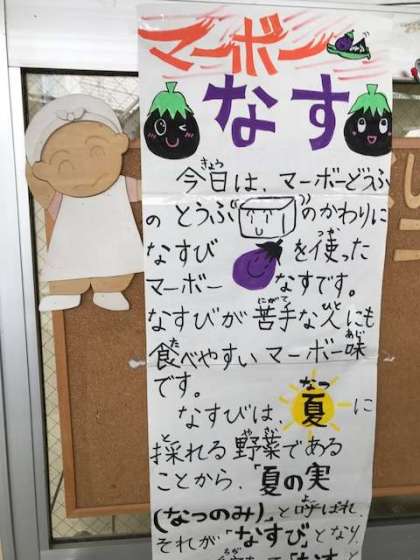 マーボー
なす
今日は、マーボーどうふ
の とうふ のかわりに
なすび を使った
マーボー なすです。
なすびが苦手な人にも
食べやすいマーボー味
です。
なすびは 夏 に
採れる野菜である
ことから、「夏の実
(なつのみ)」と呼ばれ、
それが「なすび」となり、